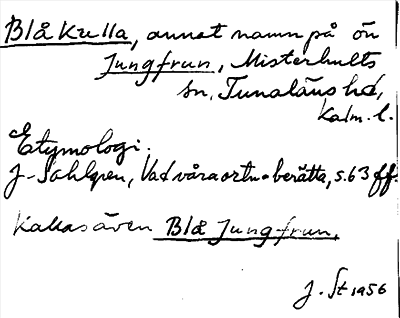 Blå Kulla, annat namn på ön
Jungfrun, Misterhults
sn, Tunaläns hd,
Kalm. l.
Etymologi.
J. Sahlgren, Vad våra ortn. berätta, s. 63 ff.
Kallas även Blå Jungfrun.
J. St 1956